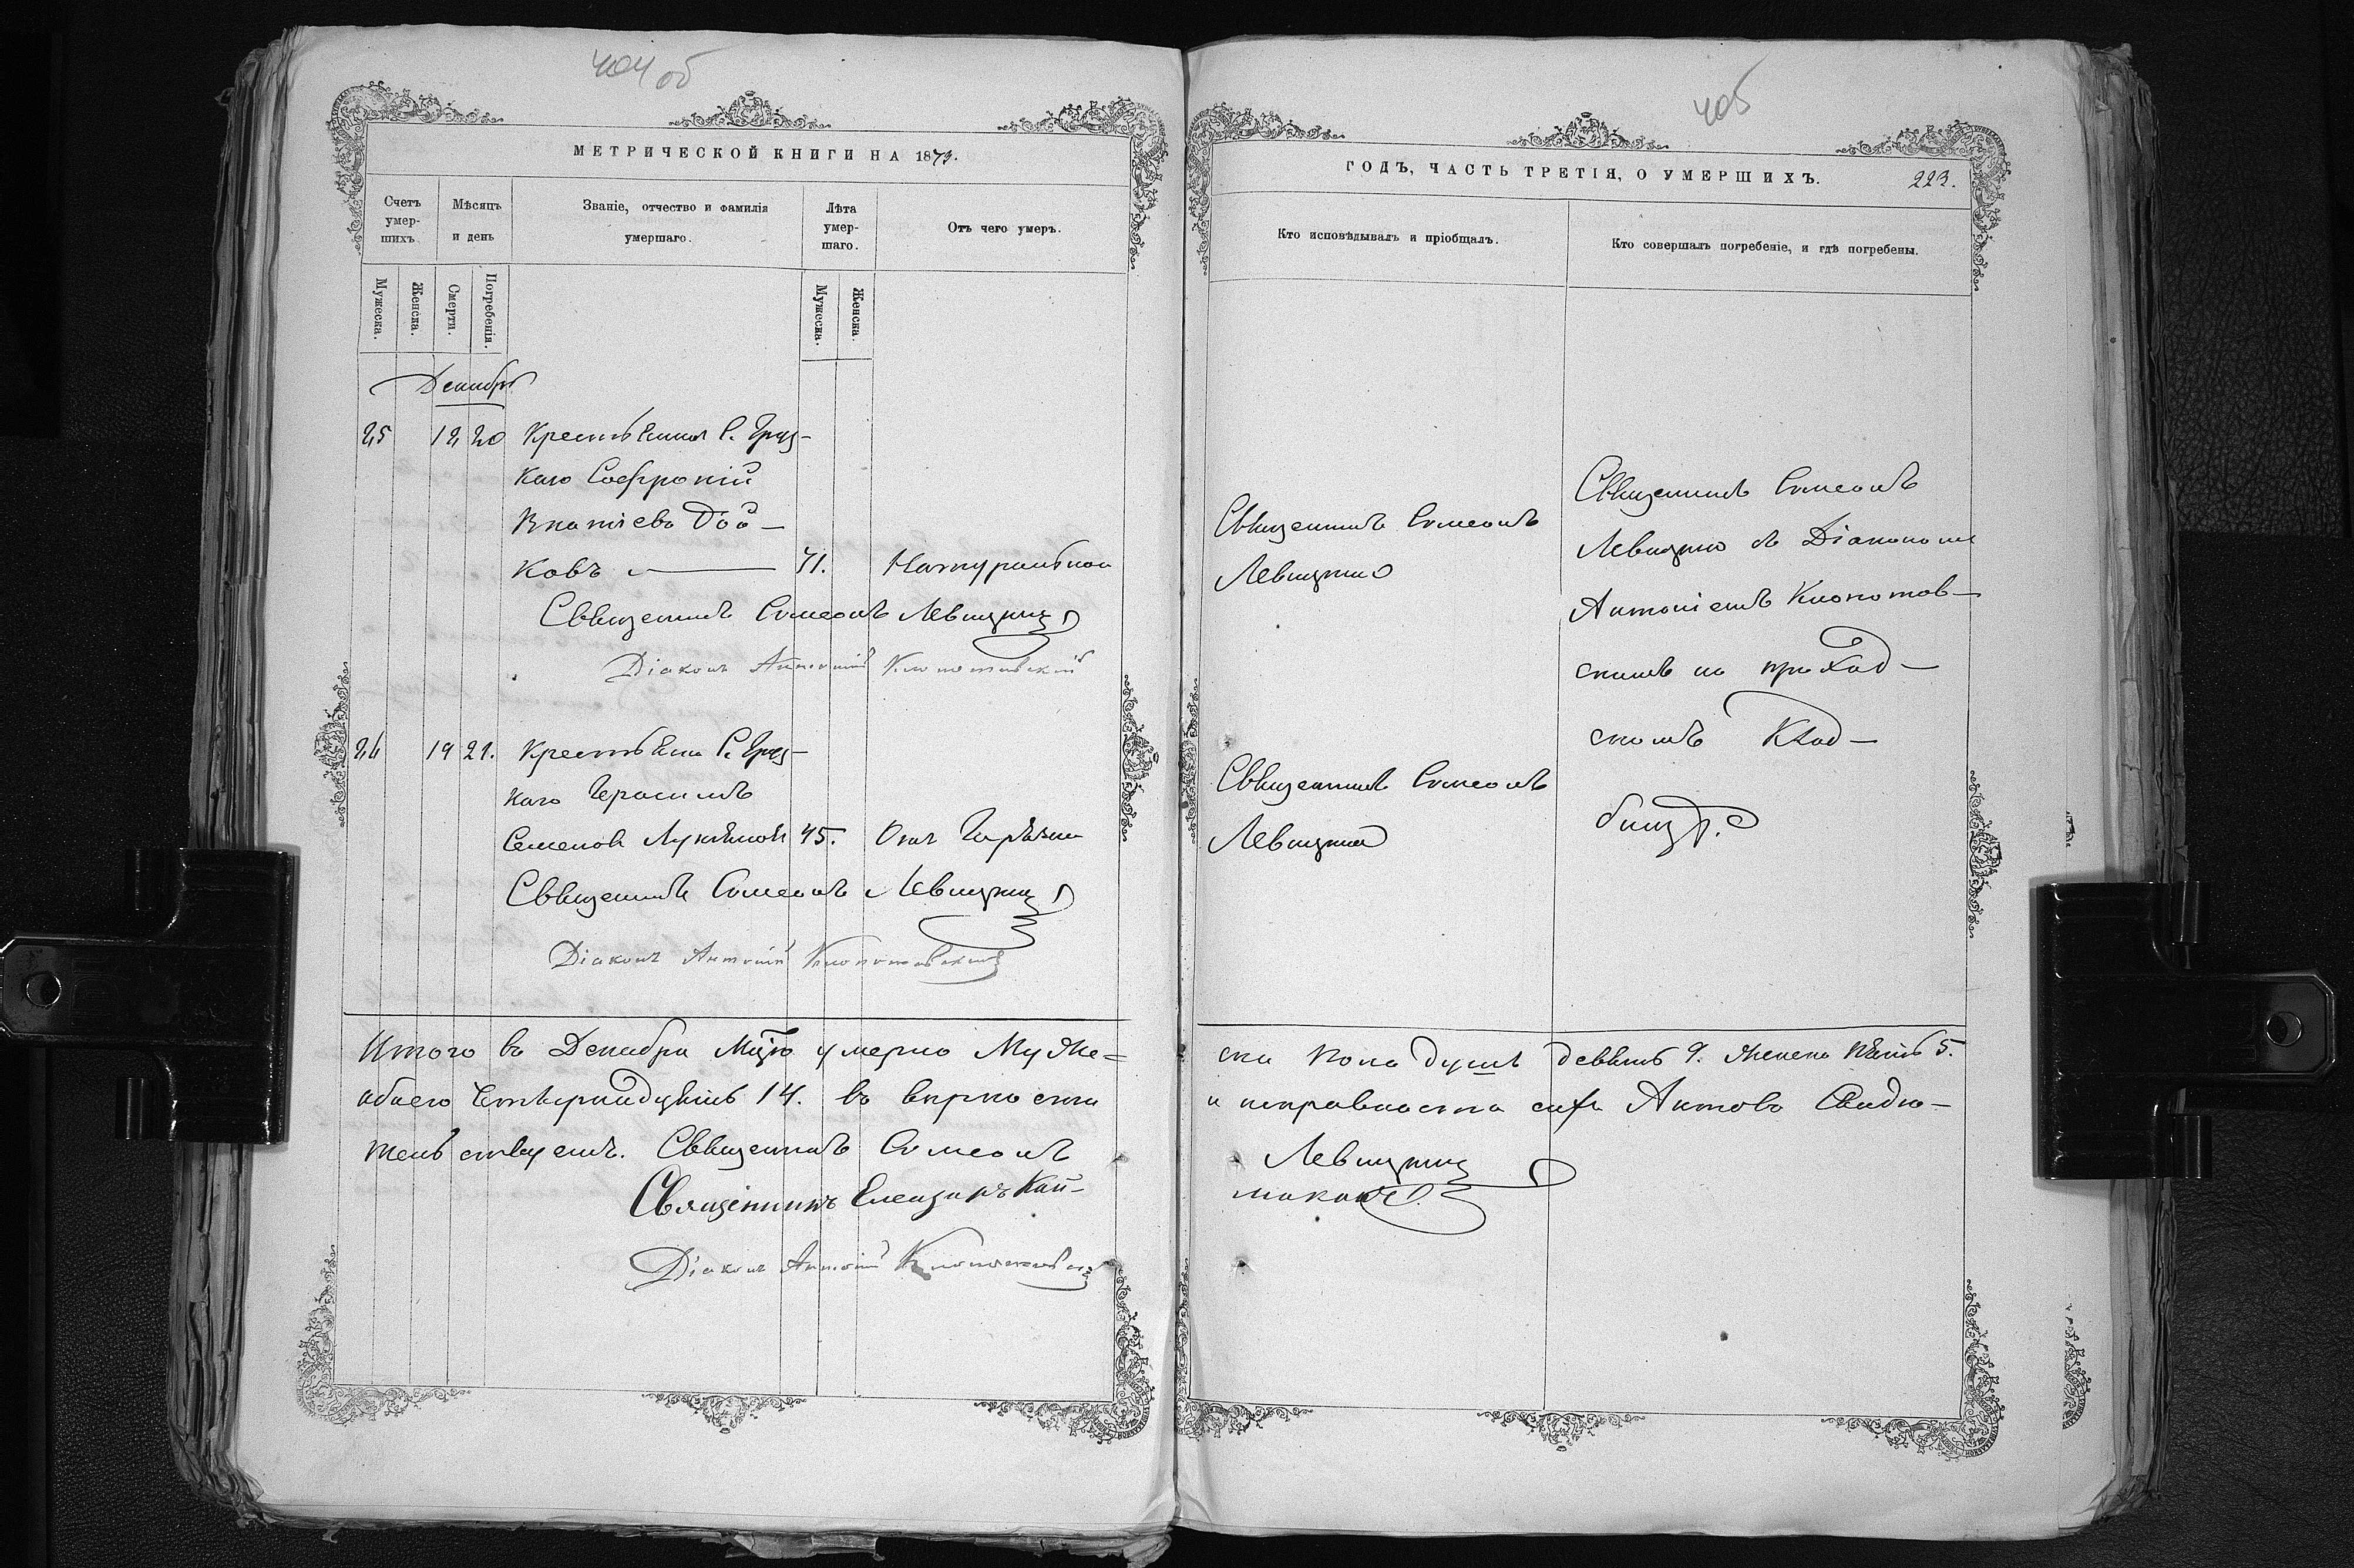 404 об
МЕТРИЧЕСКОЙ КНИГИ НА 1873.
Счетъ умер-шихъ.
Мѣсяцъ и день
Званіе, отчество и фамилія умершаго.
Лѣта умер-шаго.
Отъ чего умеръ.
Мужеска.
Женска.
Смерти.
Погребенія.
Мужеска.
Женска.
Декабрь
25 12 20 Крестьянинъ С. Груз-
каго Софроній
Игнатіевъ
ковъ 71. Натуральной
Священникъ Симеонъ Левицкій
Діаконъ Антоній Клопотовскій
26 19 21. Крестьянинъ С. Груз-
каго Герасимъ
Семеновъ 45. Отъ Горячки
Священникъ Симеонъ Левицкій
Діаконъ Антоній Клопотовскій
Итого въ Декабрѣ М-цѣ умерло Муже-
обоего Четырнадцять 14. въ вѣрности
тельствуемъ. Священникъ Симеонъ
Священникъ Елеазаръ Кал-
Діаконъ Антоній Клопотовскій
405
ГОДЪ, ЧАСТЬ ТРЕТІЯ, О УМЕРШИХЪ.
223.
Кто исповѣдывалъ и пріобщалъ.
Кто совершалъ погребеніе, и гдѣ погребены.
Священникъ Симеонъ
Левицкій
Священникъ Симеонъ
Левицкій
Священникъ Симеонъ
Левицкій съ Діакономъ
Антоніемъ Клопотов-
скимъ на приход-
скомъ Клад-
бищѣ.
ска пола душъ девять 9. женска пять 5.
и исправности сихъ Актовъ Свидѣ-
Левицкій